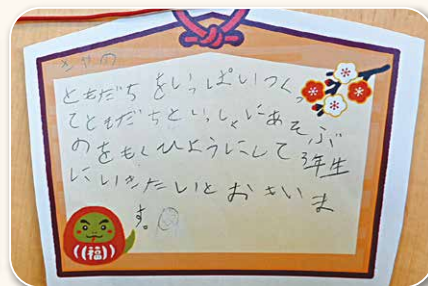 ともだちをいっぱいつくっ
てともだちといっしょにあそぶ
のをもくひようにして3年生
にいきたいとおもいま
す。
福